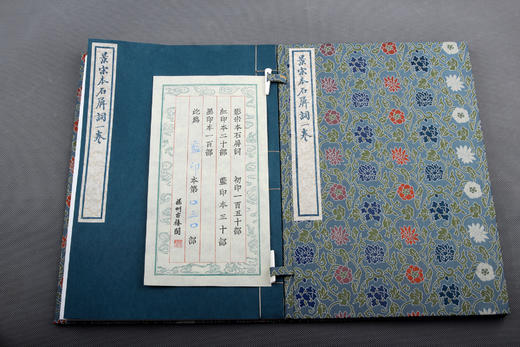 景宋本石屏詞一卷
影宋本石屏詞 初印一百五十部
紅印本二十部 藍印本三十部
黑印本一百部
此為 藍印 本第 〇三〇 部
揚州古
景宋本石屏詞一卷